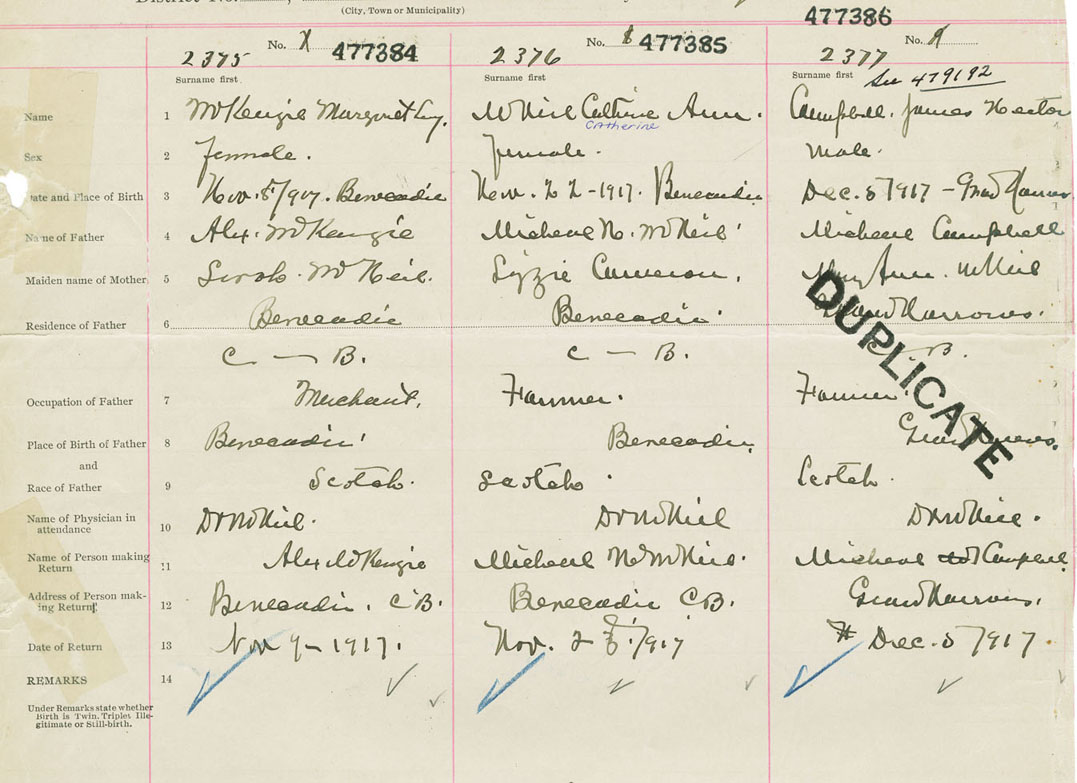 District No.
(City, Town or Municipality)
2375 No. 477384
2376 No. 8 477385
477386
2377 No. 9
See 479192
Surname first
Surname first
Surname first
Name 1 McKenzie Margaret
McNeil Cathrine Ann.
Catherine
Campbell. James Hector
Sex 2 female. female. male.
Date and Place of Birth 3 Nov. 8/1917. Benecadie Nov. 22-1917. Benecadie Dec. 5 1917 - Grand Narrows
Name of Father 4 Alex. McKenzie Micheal N. McNeil Micheal Campbell
Maiden name of Mother 5 Sarah. McNeil. Lizzie Cameron. Mary Ann. McNeil
Residence of Father 6 Benecadie Benecadie Grand Narrows.
C — B. C — B. C. B.
DUPLICATE
Occupation of Father 7 Merchant. Farmer. Farmer.
Place of Birth of Father 8 Benecadie Benecadie. Grand Narrows.
and
Race of Father 9 Scotch. Scotch. Scotch.
Name of Physician in
attendance 10 Dr McNeil. Dr McNeil Dr McNeil.
Name of Person making
Return 11 Alex McKenzie Micheal N McNeil. Micheal Campbell.
Address of Person mak-
ing Return 12 Benecadie. C B. Benecadie CB. Grand Narrows.
Date of Return 13 Nov 9-1917. Nov. 23/1917 Dec. 5 1917.
REMARKS 14
Under Remarks state whether
Birth is Twin, Triplet, Ille-
gitimate or Still-birth.